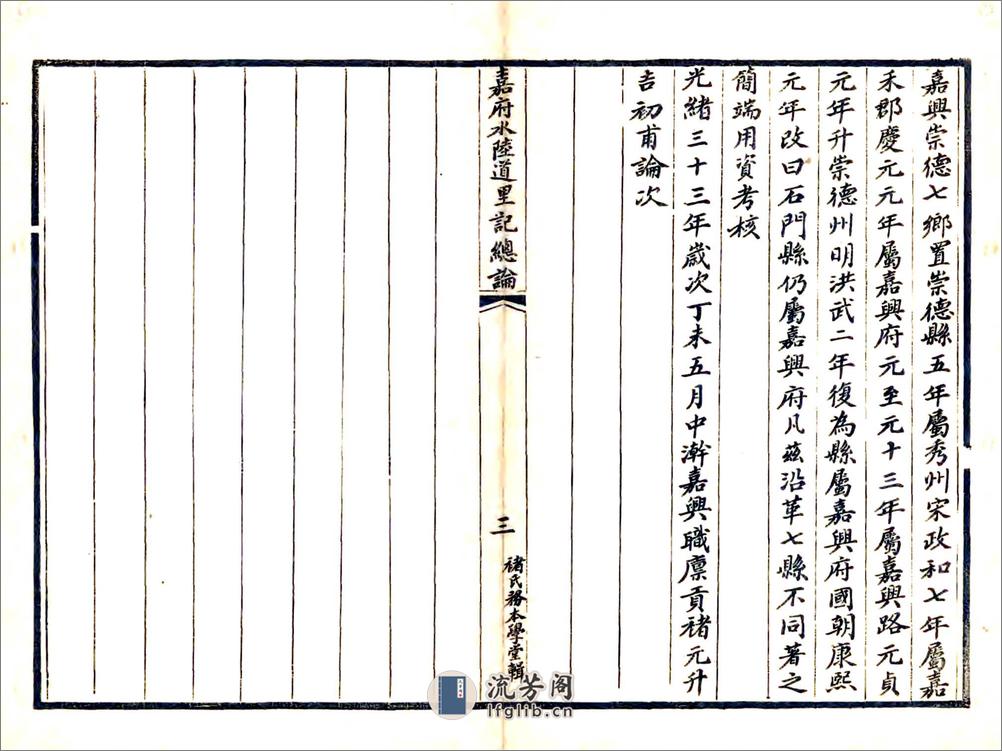 嘉興崇德七鄉置崇德縣五年屬秀州宋政和七年屬嘉
禾郡慶元元年屬嘉興府元至元十三年屬嘉興路元貞
元年升崇德州明洪武二年復為縣屬嘉興府國朝康熙
元年改曰石門縣仍屬嘉興府凡茲沿革七縣不同著之
簡端用資考核
光緒三十三年歲次丁未五月中澣嘉興職廪貢褚元升
吉初甫論次
嘉府水陸道里記總論
三
褚氏務本學堂輯
流芳阁
lfglib.cn